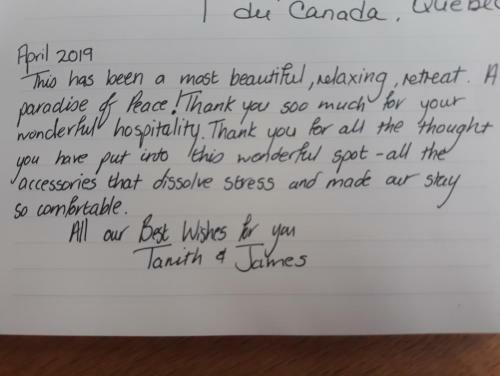 du Canada, Québec
April 2019
This has been a most beautiful, relaxing, retreat. A
paradise of Peace! Thank you soo much for your
wonderful hospitality. Thank you for all the thought
you have put into this wonderful spot - all the
accessories that dissolve stress and made our stay
so comfortable.
All our Best Wishes for you
Tanith & James